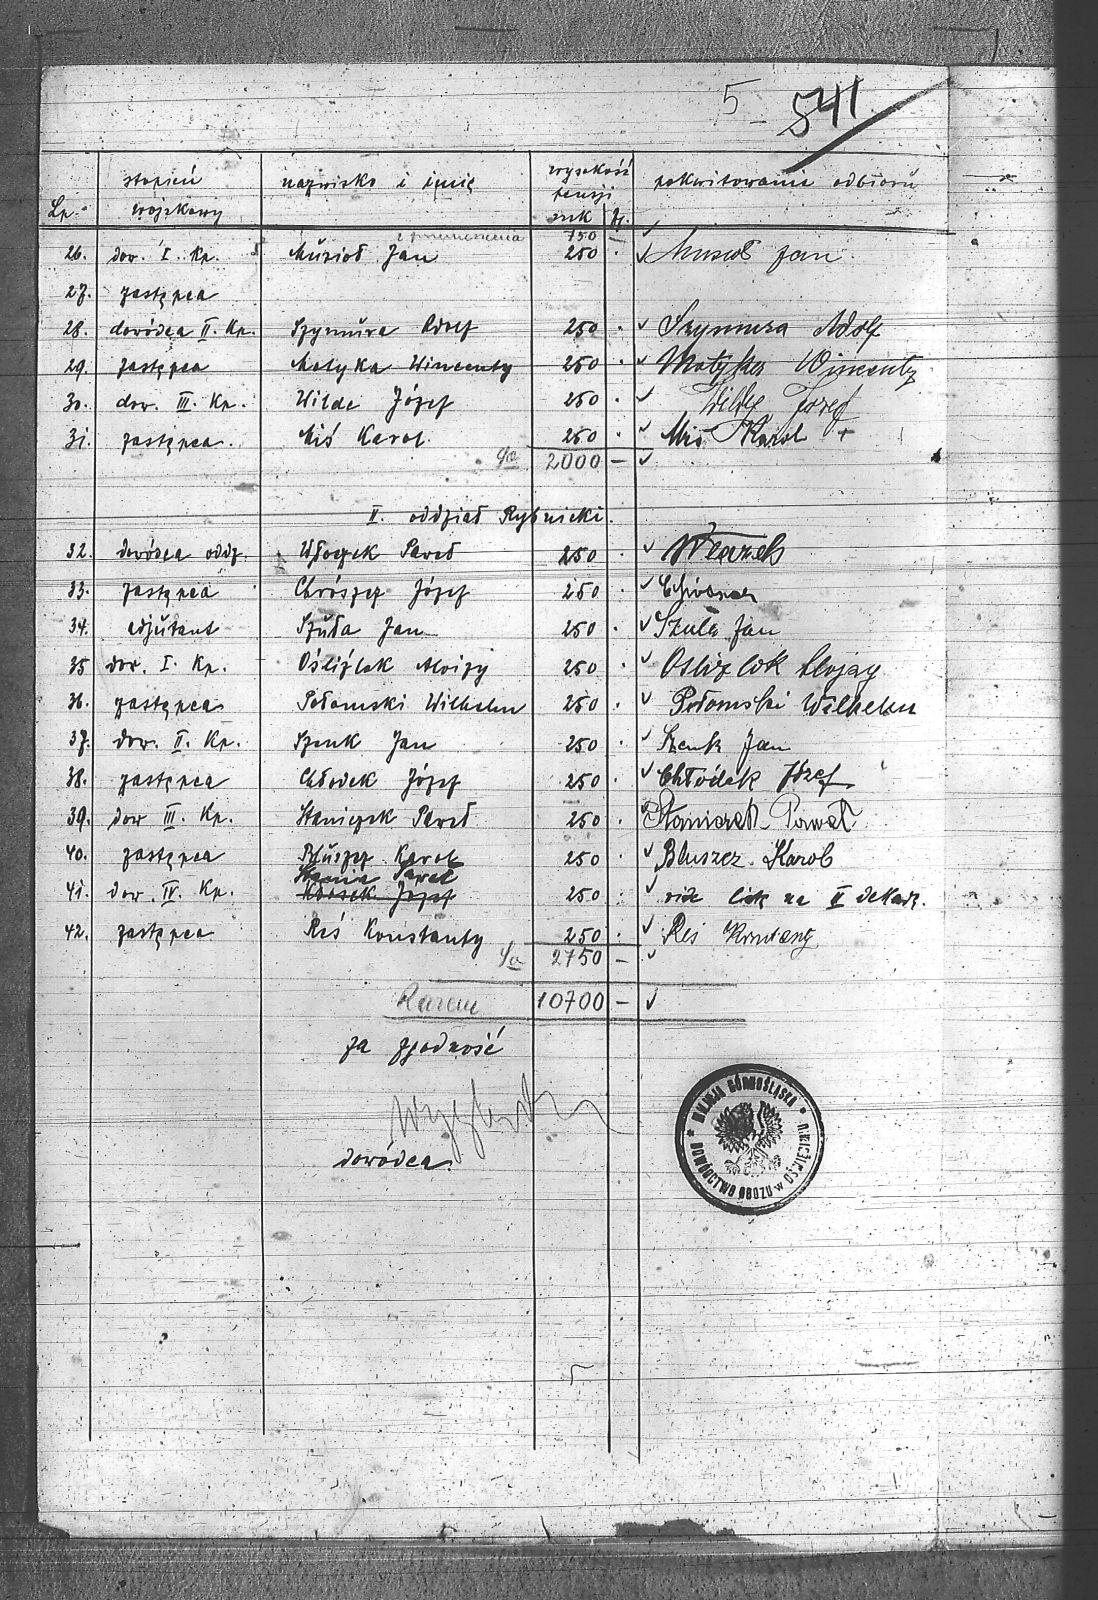 5 541
Lp. stopień wojskowy nazwisko i imię wysokość pensji mk f. pokwitowanie odbioru
z przeniesienia 750 —
26. dow. I. Kp. Musioł Jan 250 . Musioł Jan
27. zastępca
28. dowódca II. Kp. Szymura Adolf 250 . Szymura Adolf
29. zastępca Motyka Wincenty 250 . Motyka Wincenty
30. dow. III. Kp. Wilde Józef 250 . Wilde Józef
31. zastępca. Miś Karol 250 . Miś Karol +
2000 —
II. oddział Rybnicki.
32. dowódca oddz. Włoczek Paweł 250 .
33. zastępca Chrószcz Józef 250 .
34. adjutant Szuła Jan 250 . Szuła Jan
35 dow. I. Kp. Oślizlok Aloizy 250 . Oslizlok Alojzy
36. zastępca Połomski Wilhelm 250 . Połomski Wilhelm
37. dow. II. Kp. Szenk Jan 250 . Szenk Jan
38. zastępca Chłodek Józef 250 . Chłódek Józef
39. dow III. Kp. Staniczek Paweł 250 . Staniczek Paweł
40. zastępca Bluszcz Karol 250 . Bluszcz Karol
Paweł
41. dow. IV. Kp. Józef 250 . na II dekadę.
42. zastępca Reś Konstanty 250 . Reś
2750 —
Razem 10700 —
za zgodność
dowódca.
MILICJA GÓRNOŚLĄSKA
DOWÓDCTWO OBOZU w OŚWIĘCIMIU
5